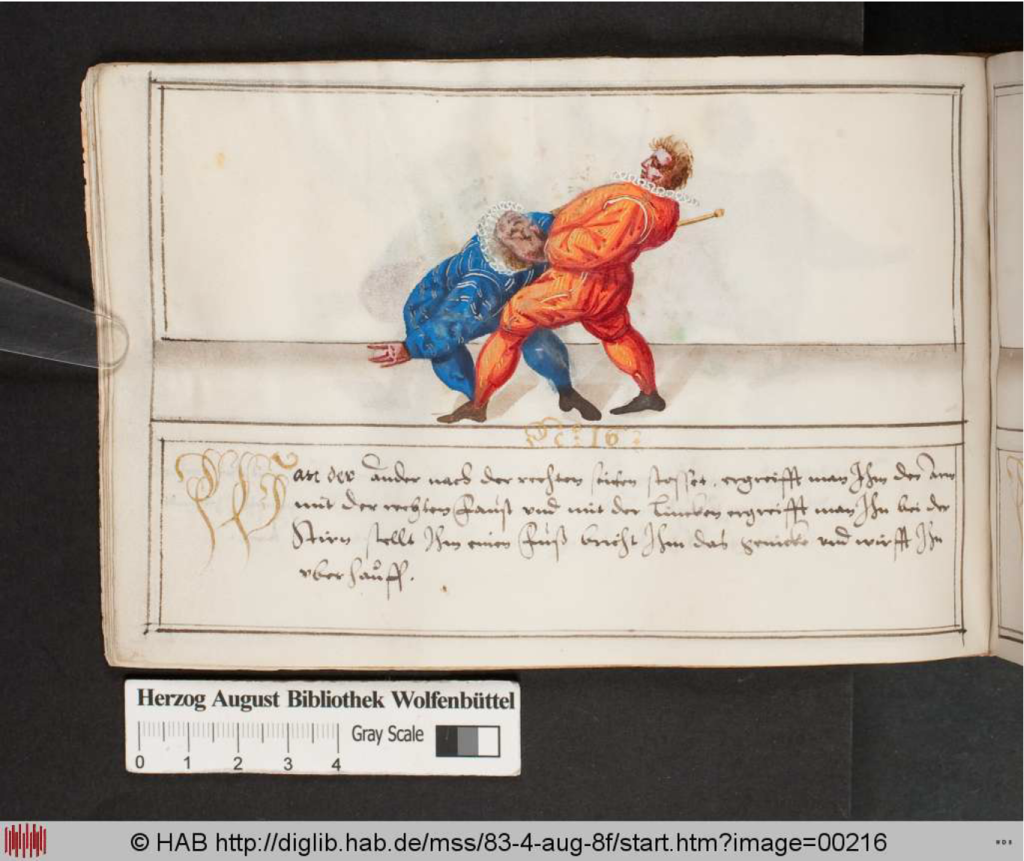 No: 16:
Wan der Ander nach der rechten seitten stosset, ergreifft man Ihm den Arm
mit der rechten Faust und mit der Lincken ergreifft man Ihn bei der
Stirn stellt Ihm einen Fuß bricht Ihm das genicke und wirfft Ihn
uber hauff.
Herzog August Bibliothek Wolfenbüttel
Gray Scale
0 1 2 3 4
© HAB http://diglib.hab.de/mss/83-4-aug-8f/start.htm?image=00216